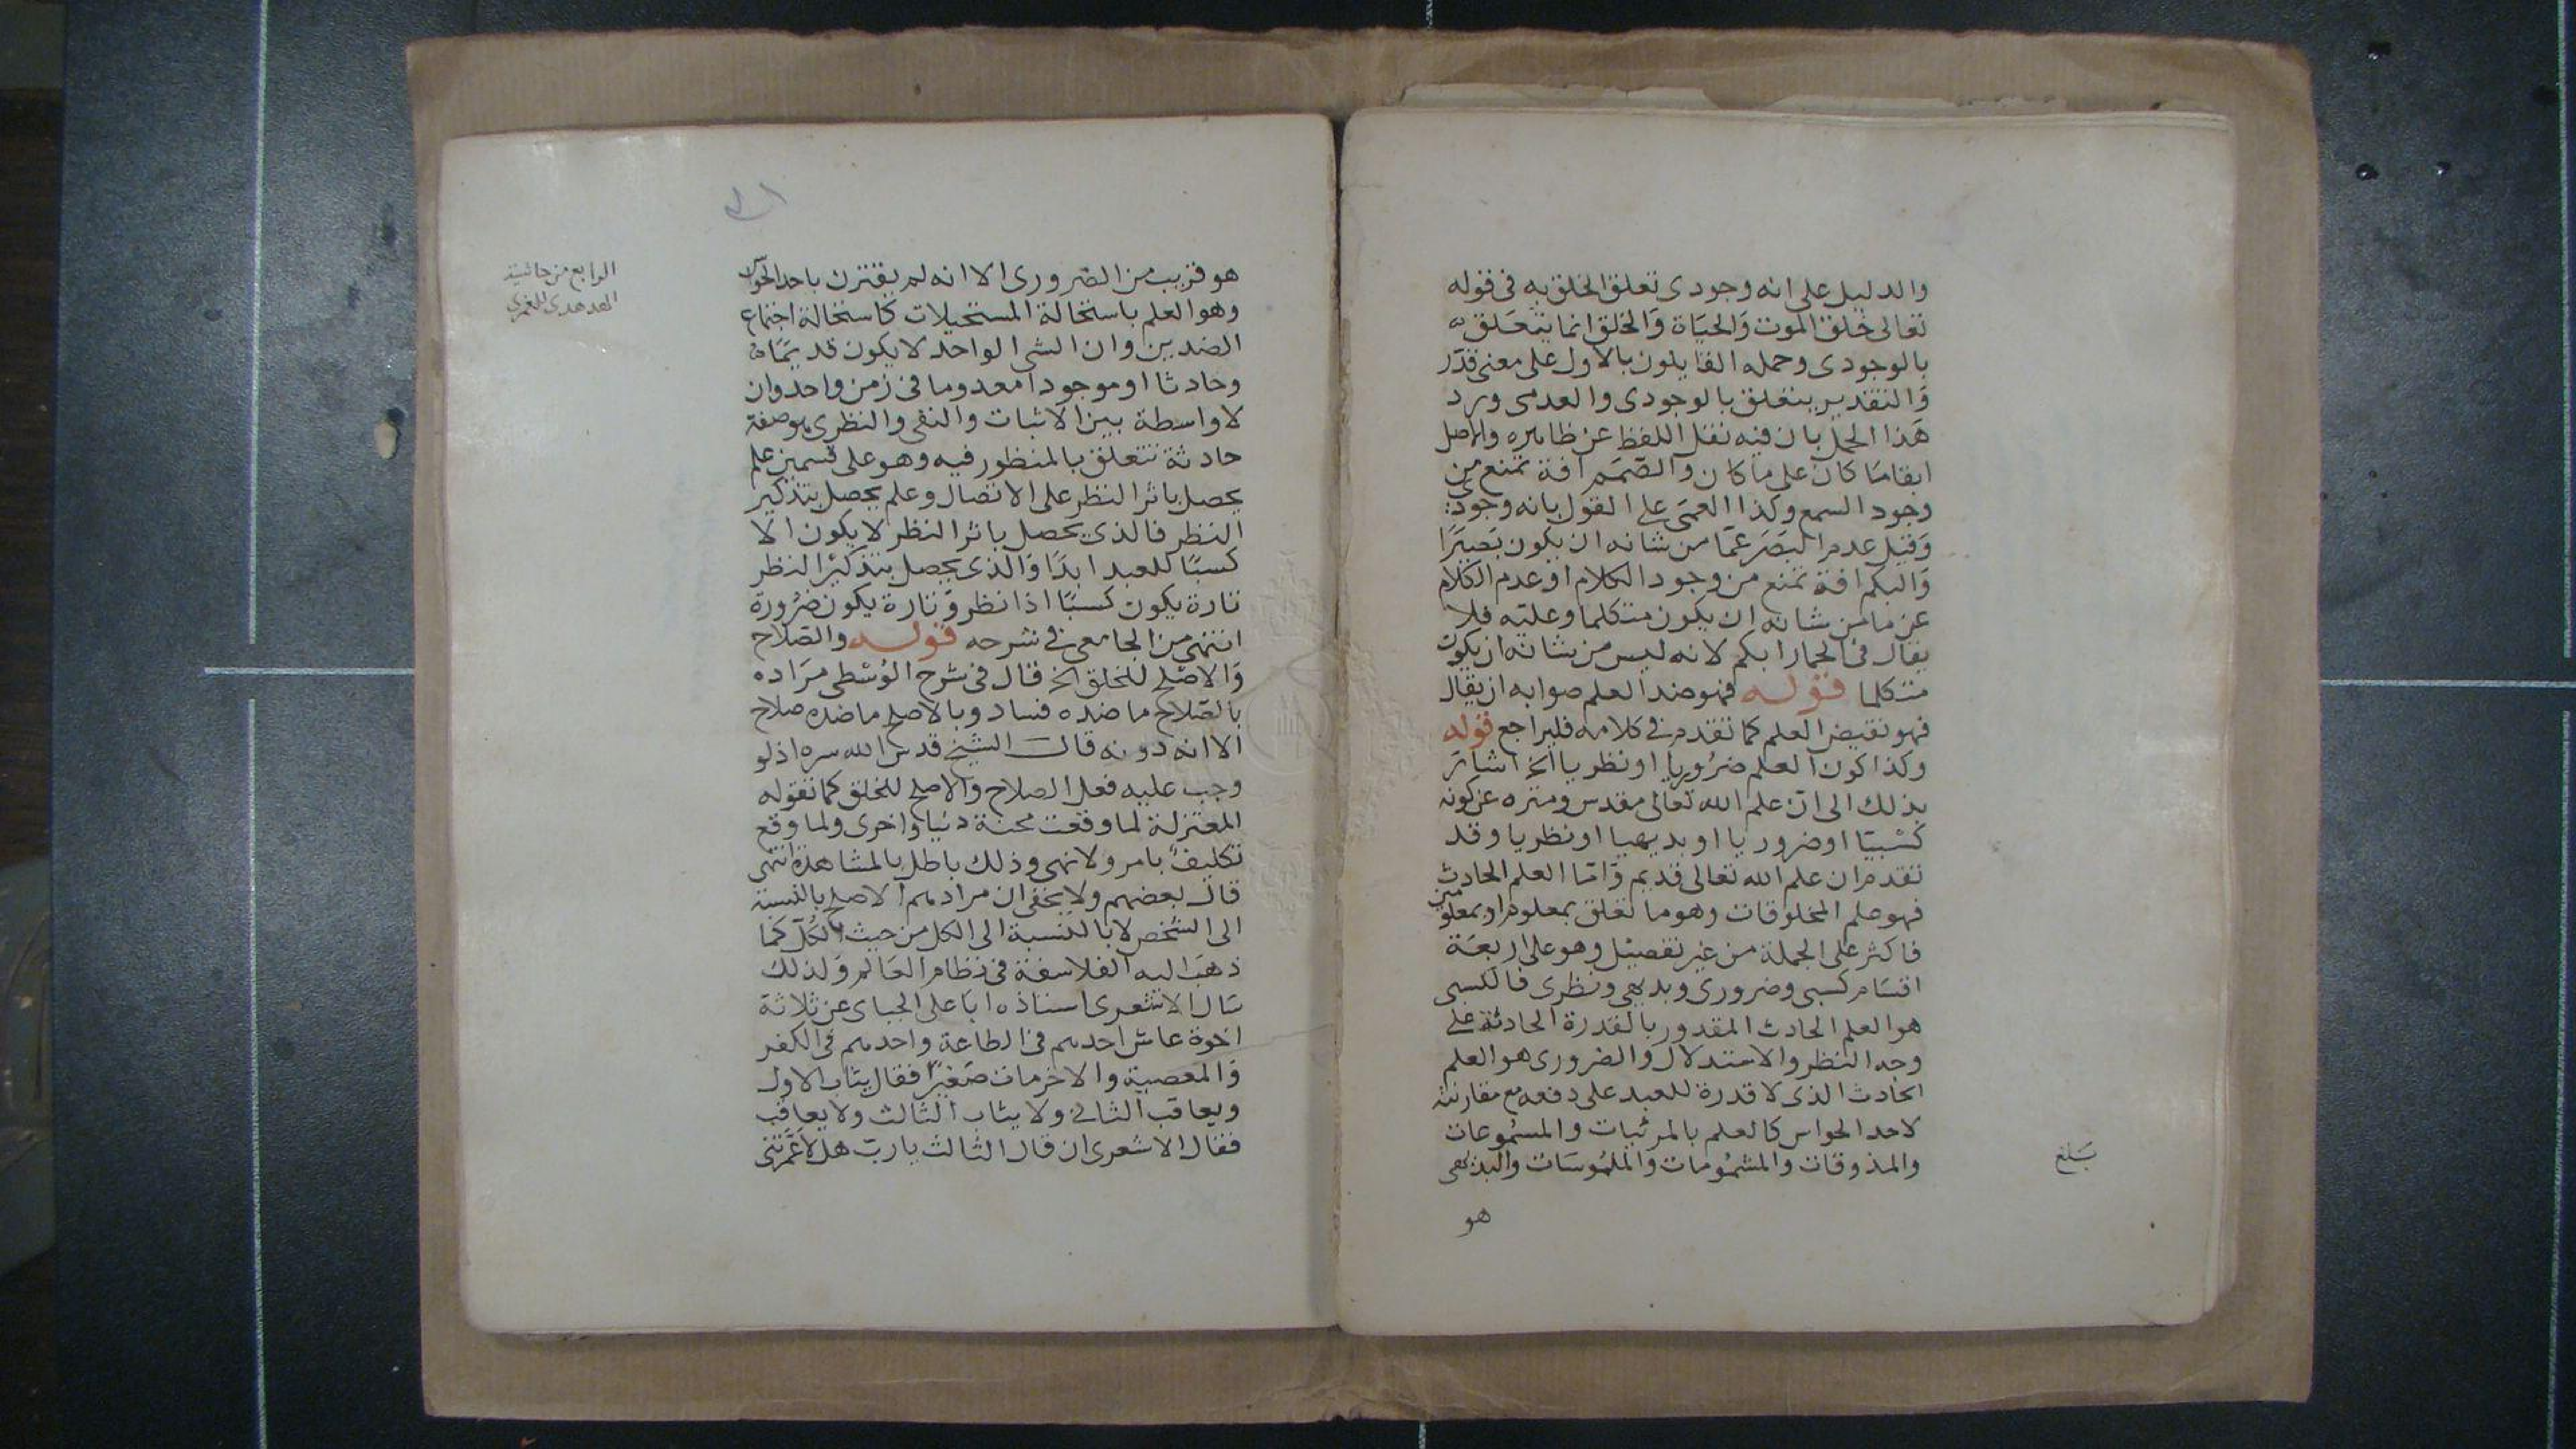 والدليل على انه وجودى تعلق الخلق به فى قوله
تعالى خلق الموت والحياة والخلق انما يتعلق
بالوجودى وحمله القايلون بالاول على معنى قدر
والتقدير يتعلق بالوجودى والعدمى ورد
هذا الحمل بان فيه نقل اللفظ عن ظاهره والاصل
ابقا ما كان على ما كان والصمم افة تمنع من
وجود السمع وكذا العمى على القول بانه وجودى
وقيل عدم البصر عما من شانه ان يكون بصيرا
والبكم افة تمنع من وجود الكلام او عدم الكلام
عن ما من شانه ان يكون متكلما وعليه فلا
يقال فى الحمار ابكم لانه ليس من شانه ان يكون
متكلما قوله فهو ضد العلم صوابه ان يقال
فهو نقيض العلم كما تقدم فى كلامه فليراجع قوله
وكذا كون العلم ضروريا او نظريا الخ اشار
بذلك الى ان علم الله تعالى مقدس ومنزه عن كونه
كسبيا او ضروريا او بديهيا او نظريا وقد
تقدم ان علم الله تعالى قديم واما العلم الحادث
فهو علم المخلوقات وهو ما تعلق بمعلوم او بمعلومين
فاكثر على الجملة من غير تفصيل وهو على اربعة
اقسام كسبى وضرورى وبديهى ونظرى فالكسبى
هو العلم الحادث المقدور بالقدرة الحادثة على
وجه النظر والاستدلال والضرورى هو العلم
الحادث الذى لا قدرة للعبد على دفعه مع مقارنته
لاحد الحواس كالعلم بالمرئيات والمسموعات
والمذوقات والمشمومات والملموسات والبديهى
بلغ
هو
الرابع من حاشية
الهدهدى للغمرى
هو قريب من الضرورى الا انه لم يقترن باحد الحواس
وهو العلم باستحالة المستحيلات كاستحالة اجتماع
الضدين وان الشى الواحد لا يكون قديما
وحادثا او موجودا معدوما فى زمن واحد وان
لا واسطة بين الاثبات والنفى والنظرى هو صفة
حادثة تتعلق بالمنظور فيه وهو على قسمين علم
يحصل باثر النظر على الاتصال وعلم يحصل بتذكير
النظر فالذى يحصل باثر النظر لا يكون الا
كسبا للعبد ابدا والذى يحصل بتذكير النظر
تارة يكون كسبا اذا نظر وتارة يكون ضرورة
انتهى من الجامعى فى شرحه قوله والصلاح
والاصلح للخلق الخ قال فى شرح الوسطى مراده
بالصلاح ما ضده فساد وبالاصلح ما ضده صلاح
الا انه دونه قال الشيخ قدس الله سره اذ لو
وجب عليه فعل الصلاح والاصلح للخلق كما تقوله
المعتزلة لما وقعت محنة دنيا واخرى ولما وقع
تكليف بامر ولا نهى وذلك باطل بالمشاهدة انتهى
قال بعضهم ولا يخفى ان مرادهم الاصلح بالنسبة
الى الشخص لا بالنسبة الى الكل من حيث الكل كما
ذهب اليه الفلاسفة فى نظام العالم ولذلك
سال الاشعرى استاذه ابا على الجباى عن ثلاثة
اخوة عاش احدهم فى الطاعة واحدهم فى الكفر
والمعصية والاخر مات صغيرا فقال يثاب الاول
ويعاقب الثانى ولا يثاب الثالث ولا يعاقب
فقال الاشعرى ان قال الثالث يا رب هلا عمرتنى